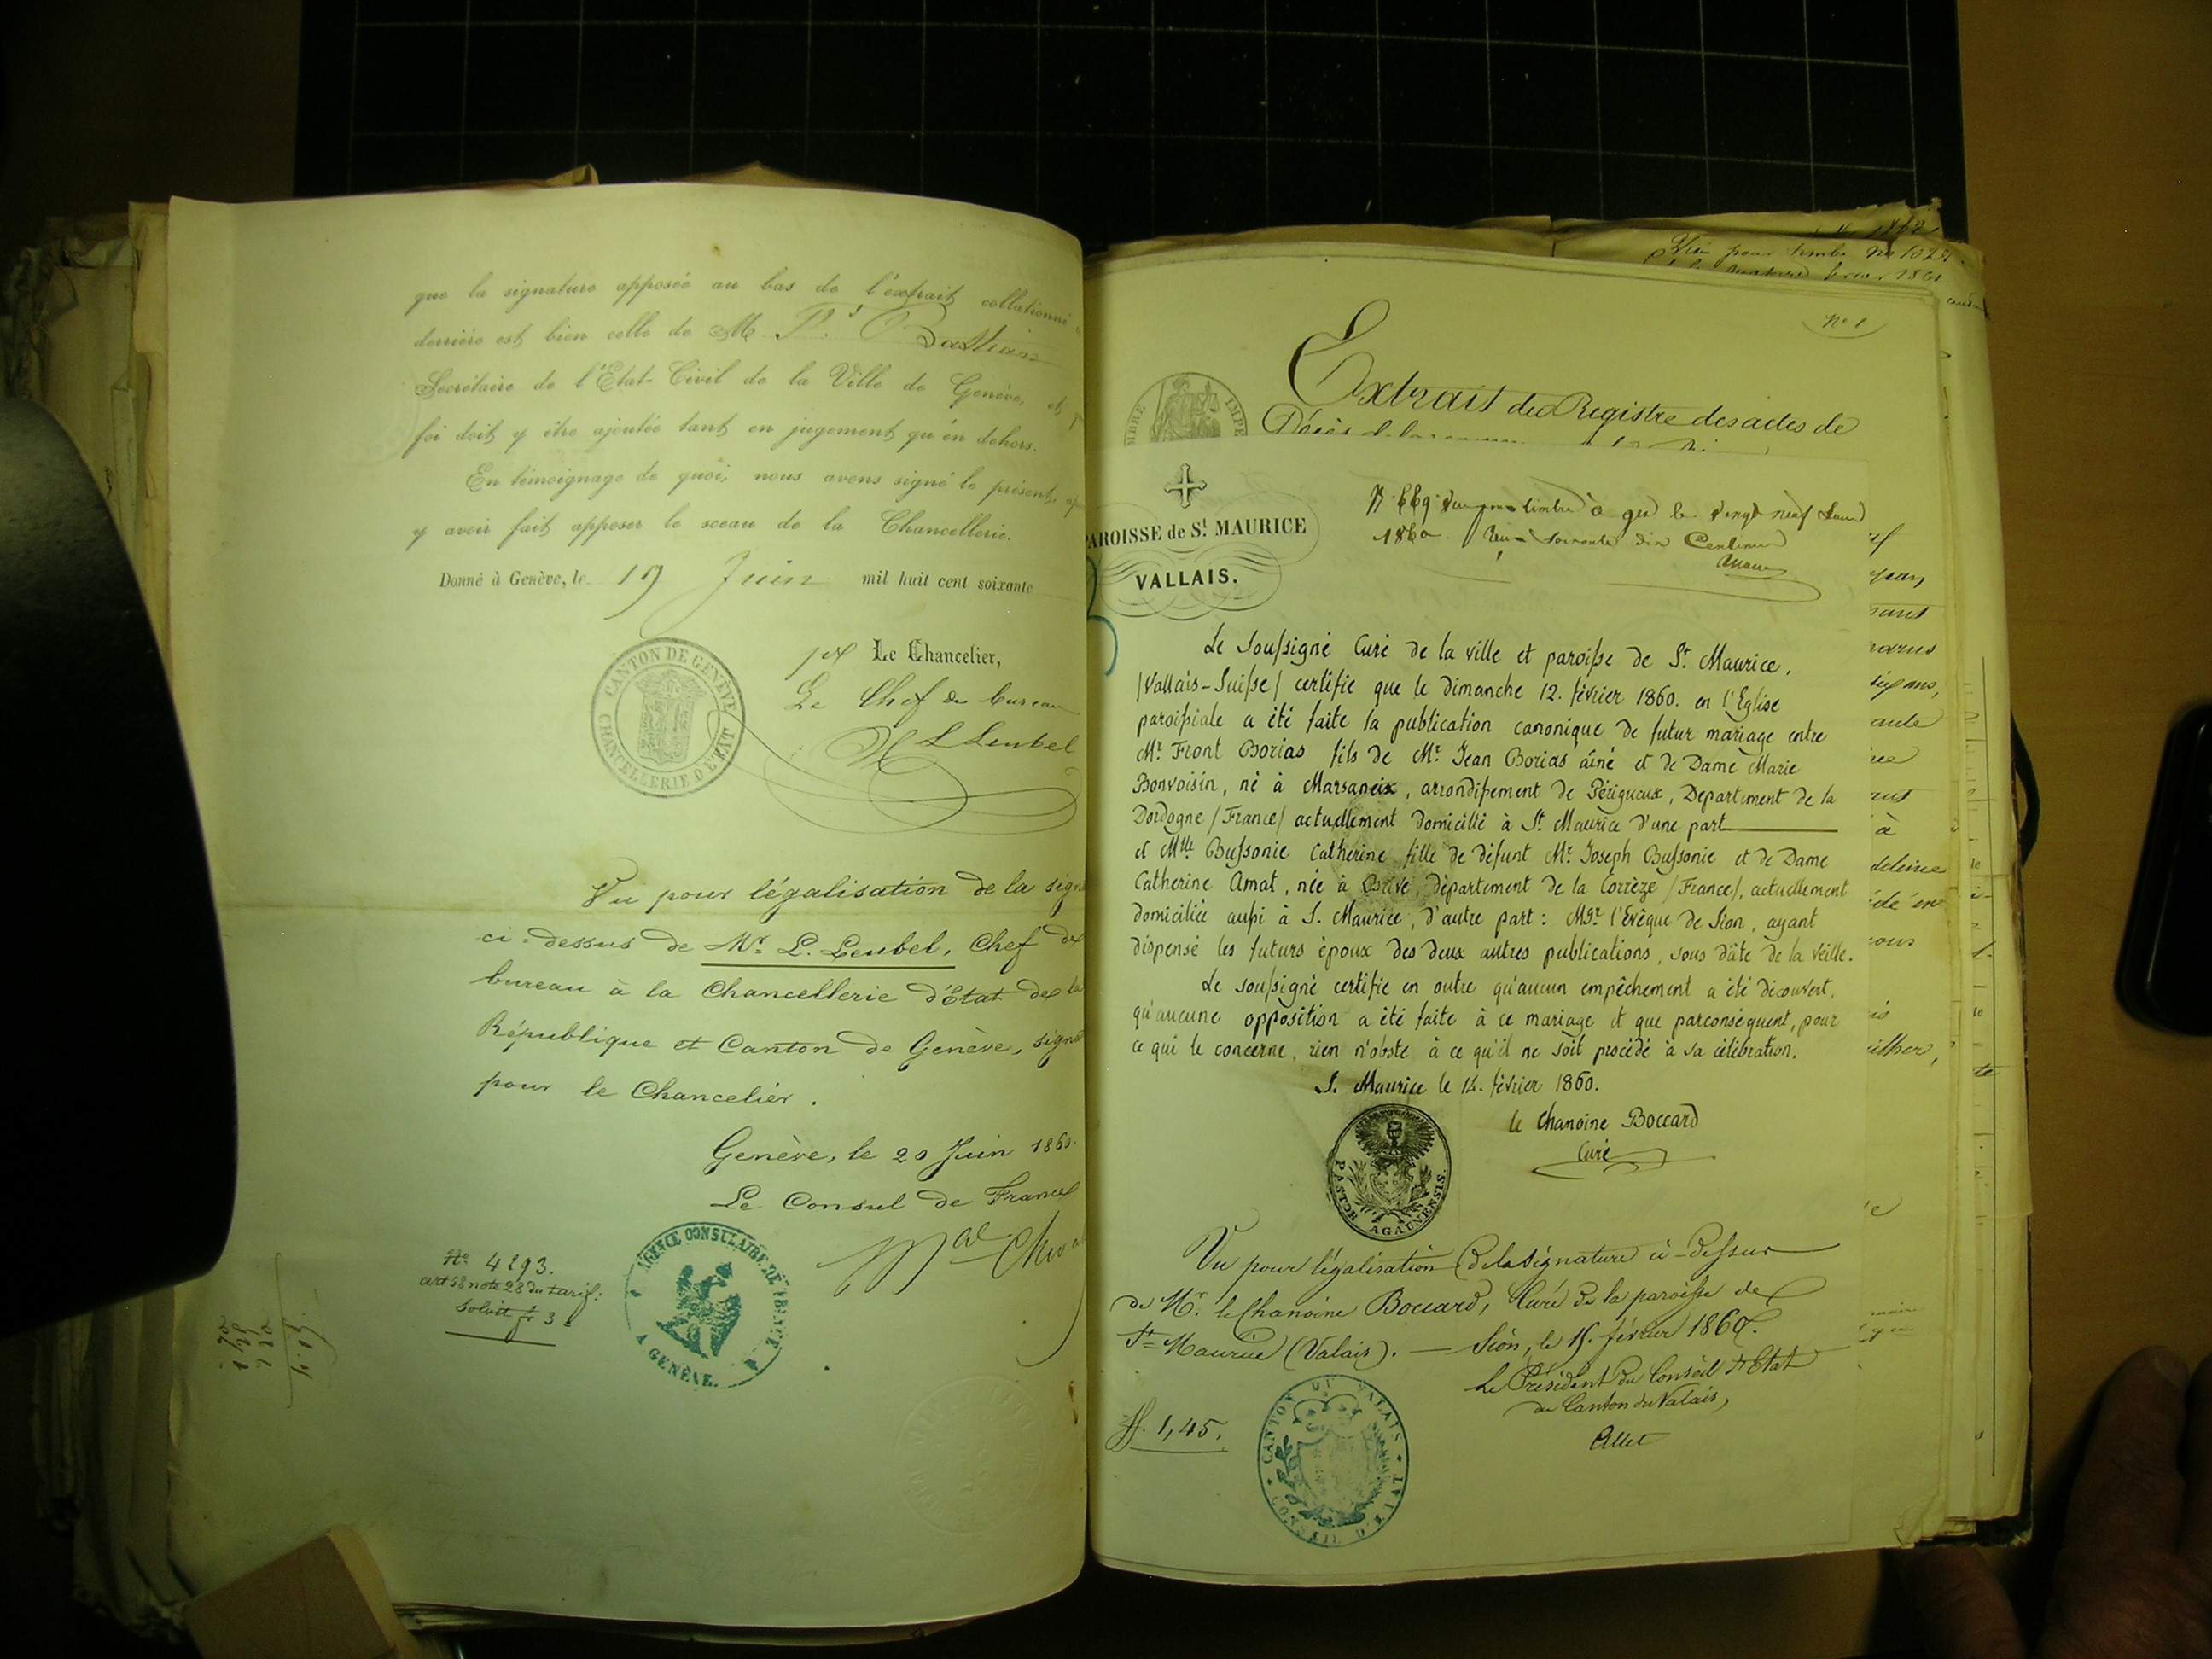 que la signature apposée au bas de l'extrait collationné
derrière est bien celle de M
Secrétaire de l'Etat-Civil de la Ville de Genève, et
foi doit y être ajoutée tant en jugement qu'en dehors.
En témoignage de quoi, nous avons signé le présent,
y avoir fait apposer le sceau de la Chancellerie.
Donné à Genève, le 19 Juin mil huit cent soixante
Le Chancelier,
Le Chef du bureau
L Leubel
CANTON DE GENÈVE
CHANCELLERIE D'ETAT
Vu pour légalisation de la sign
ci-dessus de Mr. L. Leubel, Chef de
bureau à la Chancellerie d'État de la
République et Canton de Genève, signé
pour le Chancelier.
Genève, le 20 Juin 1860.
Le Consul de France
AGENCE CONSULAIRE DE FRANCE
A GENÈVE.
No 4293.
art 58 note 28 du tarif:
Solvit fr 3
1862
Visé pour timbre No 102
1861
No 1
Extrait du Registre des actes de
Décès de la
TIMBRE IMPE
PAROISSE de St. MAURICE
VALLAIS.
timbre à le vingt neuf
1860. soixante dix Centimes
Le Soussigné Curé de la ville et paroisse de St. Maurice,
/Vallais-Suisse/ certifie que le dimanche 12. février 1860. en l'Eglise
paroissiale a été faite la publication canonique de futur mariage entre
Mr. Front Borias fils de Mr. Jean Borias aîné et de Dame Marie
Bonvoisin, né à Marsaneix, arrondissement de Périgueux, Département de la
Dordogne /France/ actuellement domicilié à St. Maurice d'une part
et Mlle Bussonie Catherine fille de défunt Mr. Joseph Bussonie et de Dame
Catherine Amat, née à Brive, département de la Corrèze /France/, actuellement
domiciliée aussi à S. Maurice, d'autre part: Mgr. l'Evêque de Sion, ayant
dispensé les futurs époux des deux autres publications, sous dâte de la veille.
Le soussigné certifie en outre qu'aucun empêchement a été découvert,
qu'aucune opposition a été faite à ce mariage et que parconséquent, pour
ce qui le concerne, rien n'obste à ce qu'il ne soit procédé à sa célébration.
S. Maurice le 14. février 1860.
le Chanoine Boccard
Curé
PASTOR AGAUNENSIS.
Vu pour légalisation de la signature ci-dessus
de Mr. le Chanoine Boccard, Curé de la paroisse de
St Maurice (Valais). — Sion, le 15. février 1860.
Le Président du Conseil d'Etat
du Canton du Valais,
Allet
ff. 1,45.
CANTON DU VALAIS
CONSEIL D'ETAT